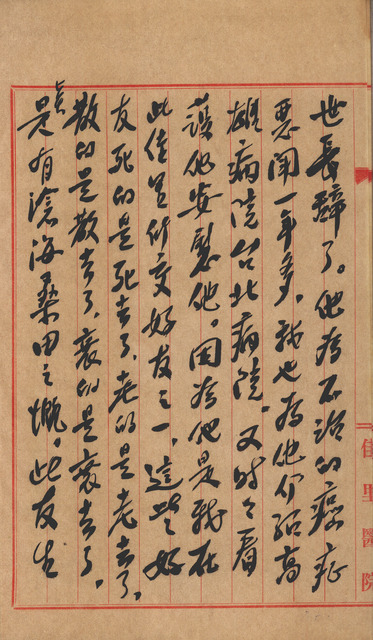 世長辭了。他為不治的癌症
惡鬪一年多。我也為他介紹高
雄病院台北病院。又時々看
護他安慰他。因為他是我在
此佳里所交好友之一、這些好
友死的是死去了、老的是老去了、
散的是散去了、衰的是衰去了。
真是有滄海桑田之慨。此友生
佳里醫院